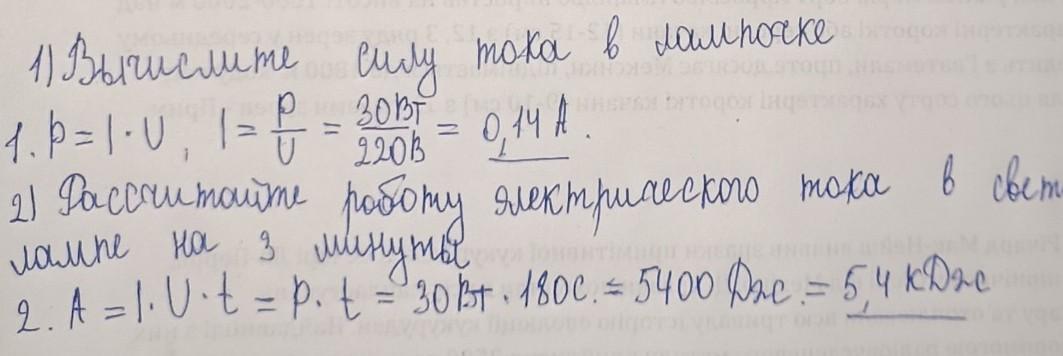 1) Вычислите силу тока в лампочке
1. P = I · U, I = P/U = 30Вт/220В = 0,14 А.
2) Рассчитайте работу электрического тока в свет
лампе на 3 минуты
2. A = I · U · t = P · t = 30Вт · 180с. = 5400 Дж = 5,4 кДж